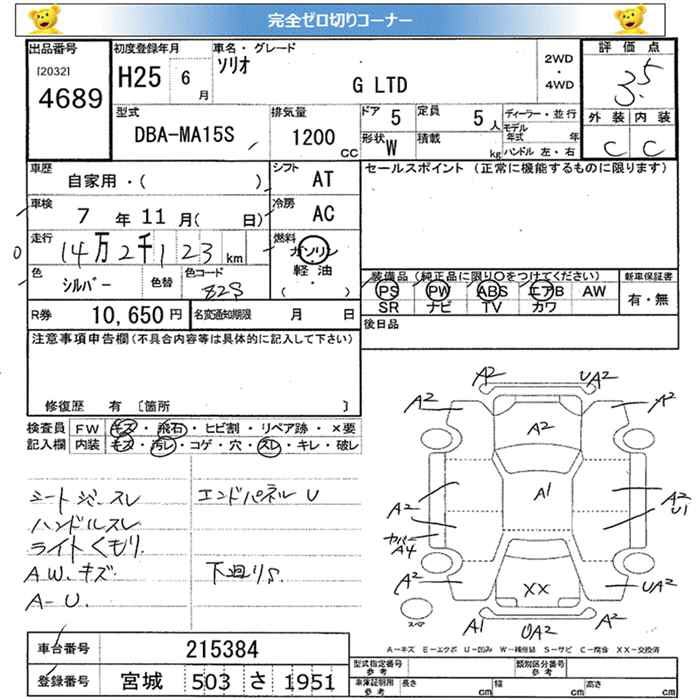 完全ゼロ切りコーナー
出品番号 初度登録年月 車名・グレード 評価点
[2032] 4689 H25 6月 ソリオ G LTD 2WD・4WD 3.5
外装 内装
C C
型式 排気量 ドア 5 定員 5人 ディーラー・並行
DBA-MA15S 1200cc 形状 W 積載 kg モデル年式 年
ハンドル 左・右
車歴 自家用・( ) シフト AT セールスポイント (正常に機能するものに限ります)
車検 7年11月( 日) 冷房 AC
走行 14万2千123km 燃料 ガソリン・軽油 ( ・ )
色 シルバー 色替 色コード 82S
装備品 (純正品に限り○をつけてください) 新車保証書
PS PW ABS エアB AW 有・無
SR ナビ TV カワ
R券 10,650円 名変通知期限 月 日 後日品
注意事項申告欄(不具合内容等は具体的に記入して下さい)
修復歴 有 〔箇所 〕
検査員 FW キズ・飛石・ヒビ割・リペア跡・×要
記入欄 内装 キズ・汚レ・コゲ・穴・スレ・キレ・破レ
シートジャースレ エンドパネルU
ハンドルスレ
ライトくもり
A.W.キズ 下廻りS
A-U.
A2 UA2
A2 A2
A2
A1
A2 A2
U1
カバー
A4
A2 UA2
XX
スペア
A1 UA2 A2
A-キズ E-エクボ U-凹み W-補修跡 S-サビ C-腐食 XX-交換済
車台番号 215384
登録番号 宮城 503 さ 1951
型式指定番号 参考 類別区分番号 参考
車庫証明用 参考 長さ cm 幅 cm 高さ cm